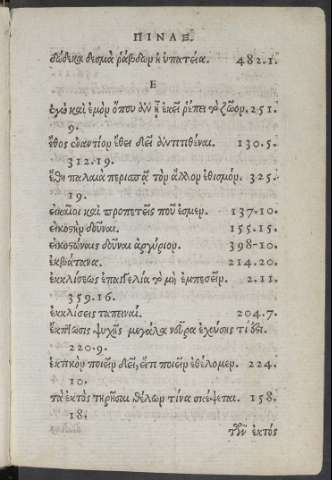 ΠΙΝΑΞ.
δώδεκα δεσμὰ ῥάβδων ἡ ὑπατεία. 482.1.
Ε
ἐγὼ καὶ ἐμὸν ὅπου ἂν ᾖ ἐκεῖ ῥέπει τὸ ζῶον. 251.
9.
ἔθος ἐναντίον ἔθει δεῖ ἀντιτιθέναι. 130.5.
312.19.
ἔθη παλαιὰ περισπᾷ τὸν ἄλλον ἐθισμόν. 325.
19.
εἰκαῖοι καὶ προπετεῖς ποῦ ἐσμεν. 137.10.
εἰκοσὴν δοῦναι. 155.15.
δοῦναι ἀργύριον. 398.10.
ἐκβάτανα. 214.20.
ἐκκλίσεως ἐπαγγελία τὸ μὴ ἐμπεσεῖν. 2.11.
359.16.
ἐκκλίσεις ταπειναί. 204.7.
ψυχῆς μεγάλα νεῦρα ἐχούσης τί δεῖ.
220.9.
ἑκτικὸν ποιεῖν δεῖ, ἔτι ποιεῖν ἐθέλομεν. 224.
10.
τὰ ἐκτὸς τηρῆσαι θέλων τίνα σκέψεται. 158.
18.
τῶν ἐκτός